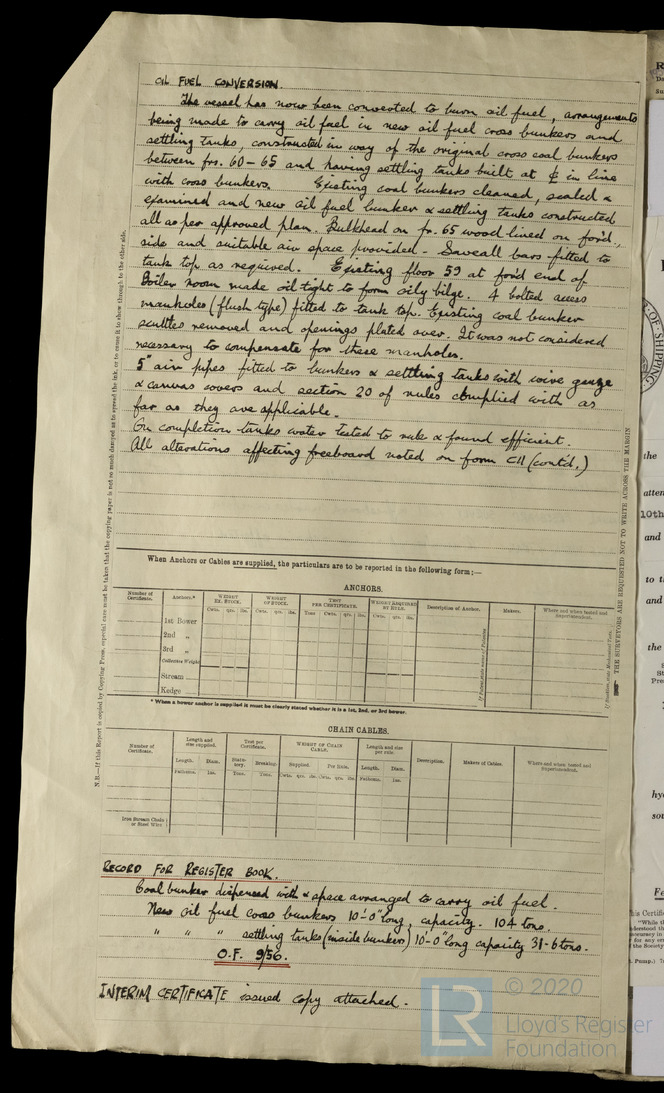 OIL FUEL CONVERSION.
The vessel has now been converted to burn oil fuel, arrangements
being made to carry oil fuel in new oil fuel cross bunkers and
settling tanks, constructed in way of the original cross coal bunkers
between frs. 60-65 and having settling tanks built at ℄ in line
with cross bunkers. Existing coal bunkers cleaned, scaled &
examined and new oil fuel bunker & settling tanks constructed
all as per approved plan. Bulkhead on fr. 65 wood lined on for'd,
side and suitable air space provided - Saveall bars fitted to
tank top as required. Existing floor 59 at for'd end of
Boiler room made oil tight to form oily bilge. 4 bolted access
manholes (flush type) fitted to tank top. Existing coal bunker
scuttles removed and openings plated over. It was not considered
necessary to compensate for these manholes.
5" air pipes fitted to bunkers & settling tanks with wire gauze
& canvas covers and section 20 of rules complied with as
far as they are applicable.
On completion tanks water tested to rule & found efficient.
All alterations affecting freeboard noted on form C11 (cont'd.)
When Anchors or Cables are supplied, the particulars are to be reported in the following form:—
ANCHORS.
Number of Certificate. Anchors.* WEIGHT EX. STOCK. WEIGHT OF STOCK. TEST PER CERTIFICATE. WEIGHT REQUIRED BY RULE. Description of Anchor. Makers. Where and when tested and Superintendent.
Cwts. qrs. lbs. Cwts. qrs. lbs. Tons Cwts. qrs. lbs. Cwts. qrs. lbs.
1st Bower
2nd „
3rd „
Collective Weight
Stream
Kedge
* When a bower anchor is supplied it must be clearly stated whether it is a 1st, 2nd, or 3rd bower.
CHAIN CABLES.
Number of Certificate. Length and size supplied. Test per Certificate. WEIGHT OF CHAIN CABLE. Length and size per rule. Description. Makers of Cables. Where and when tested and Superintendent.
Length. Diam. Statutory. Breaking. Supplied. Per Rule. Length. Diam.
Fathoms. Ins. Tons. Tons. Cwts. qrs. lbs. Cwts. qrs. lbs. Fathoms. Ins.
Iron Stream Chain or Steel Wire
RECORD FOR REGISTER BOOK.
Coal bunker dispensed with & space arranged to carry oil fuel.
New oil fuel cross bunkers 10'-0" long, capacity. 104 tons.
" " " settling tanks (inside bunkers) 10'-0" long capacity 31-6 tons.
O.F. 9/56.
INTERIM CERTIFICATE issued copy attached.
N.B.—If this Report is copied by Copying Press, especial care must be taken that the copying paper is not so much damped as to spread the ink, or to cause it to show through to the other side.
THE SURVEYORS ARE REQUESTED NOT TO WRITE ACROSS THE MARGIN
OF SHIPPING
the
atten
10th
and
to t
and
the
hy
so
© 2020
LR
Lloyd's Register
Foundation